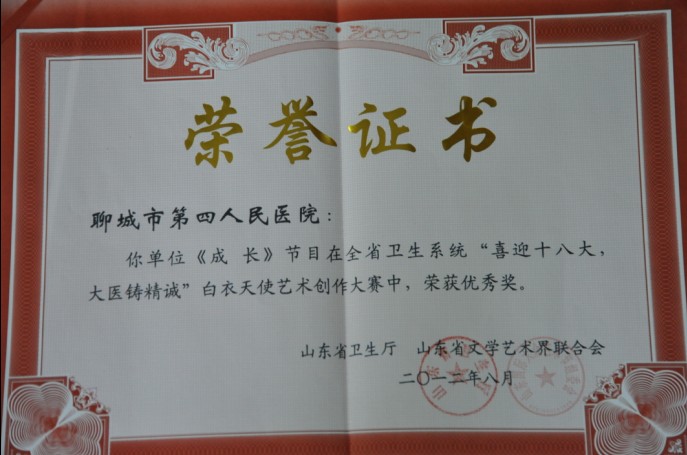 荣誉证书
聊城市第四人民医院：
你单位《成 长》节目在全省卫生系统“喜迎十八大，
大医铸精诚”白衣天使艺术创作大赛中，荣获优秀奖。
山东省卫生厅 山东省文学艺术界联合会
二〇一二年八月